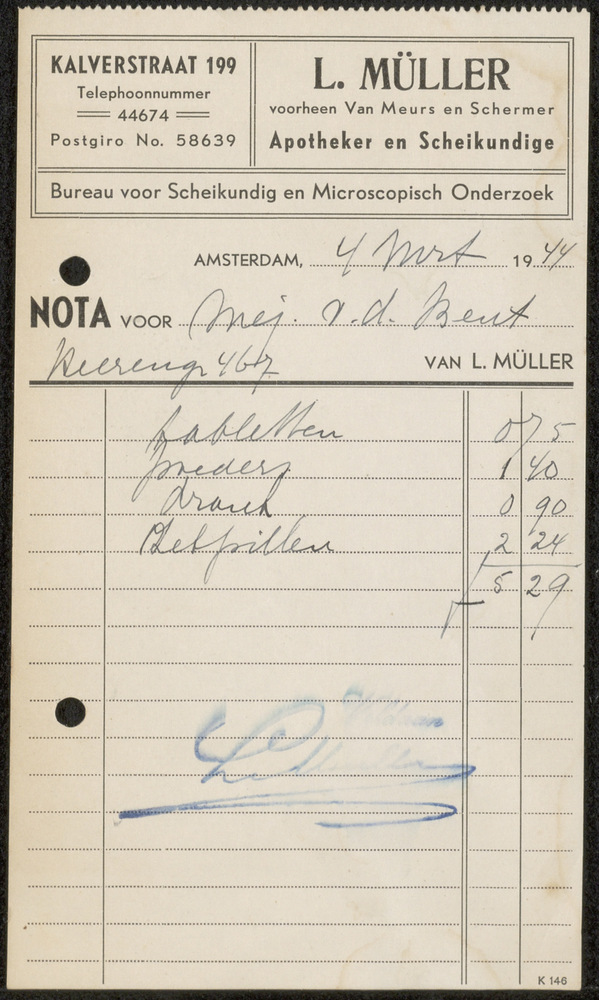 KALVERSTRAAT 199
Telephoonnummer
44674
Postgiro No. 58639
L. MÜLLER
voorheen Van Meurs en Schermer
Apotheker en Scheikundige
Bureau voor Scheikundig en Microscopisch Onderzoek
AMSTERDAM, 4 Mrt 1944
NOTA VOOR Mej. v.d. Bent
Heerengr 467 VAN L. MÜLLER
tabletten 0 75
poeders 1 40
drank 0 90
Zetpillen 2 24
f 5 29
Voldaan
K 146